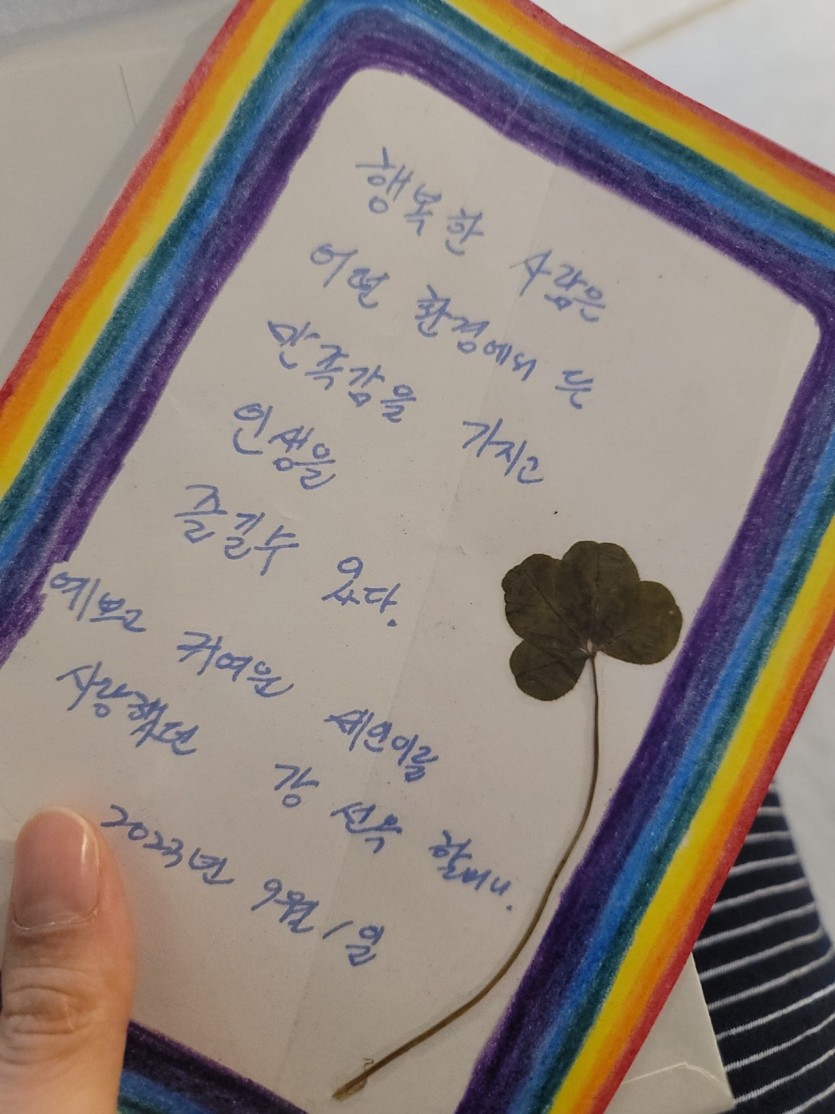 행복한 사람은
어떤 환경에서든
만족감을 가지고
인생을
즐길수 있다.
예쁘고 귀여운 세인이를
사랑했던 강선옥 할머니.
2023년 9월 1일